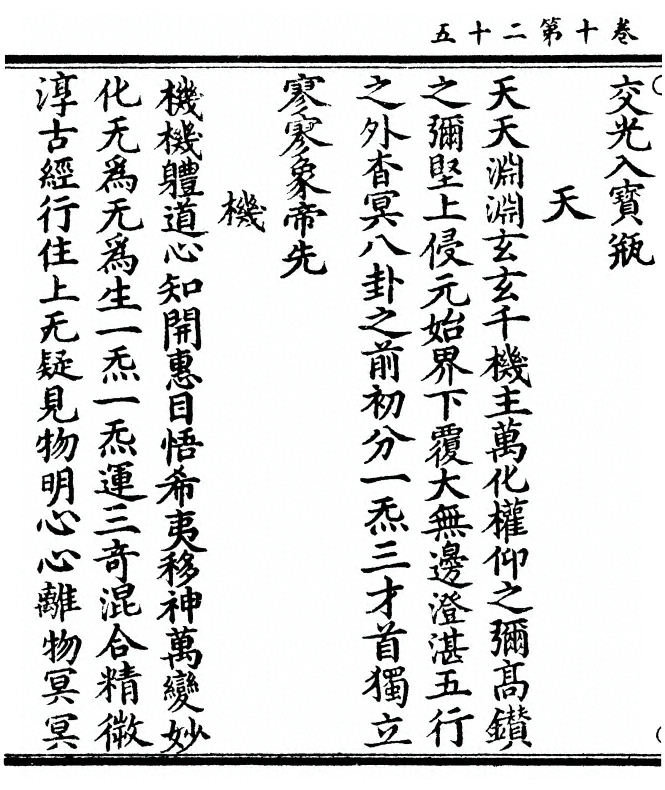 卷十第二十五
交光入寶瓶
天
天天淵淵玄玄千機主萬化權仰之彌髙鑚
之彌堅上侵元始界下覆大無邊澄湛五行
之外杳冥八卦之前初分一炁三才首獨立
寥寥象帝先
機
機機體道心知開惠目悟希夷移神萬變妙
化无爲无爲生一炁一炁運三竒混合精微
淳古經行住上无疑見物明心心離物冥冥